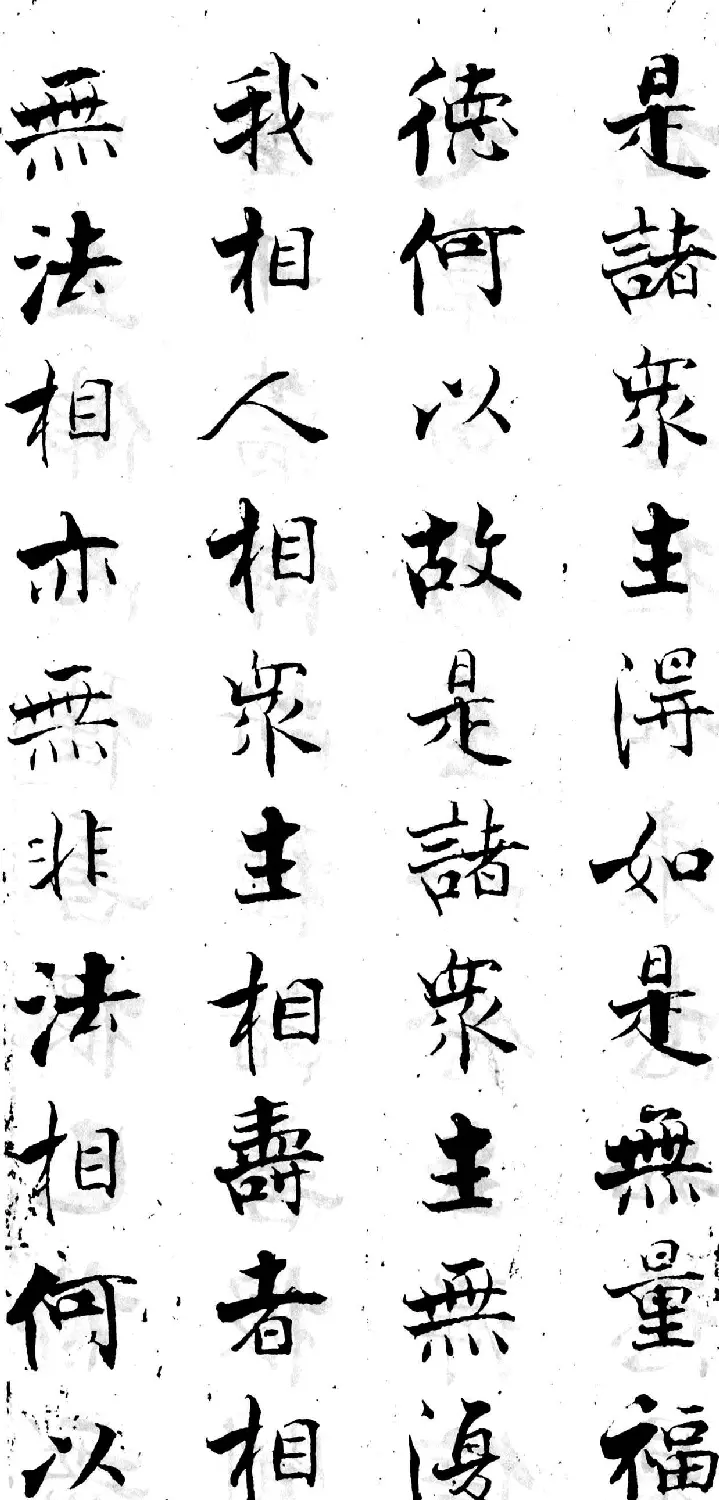 是諸眾生得如是無量福
德何以故是諸眾生無復
我相人相眾生相壽者相
無法相亦無非法相何以